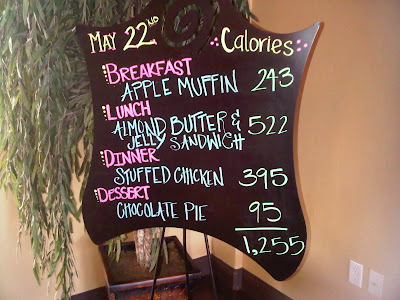 May 22ND Calories
Breakfast
Apple Muffin 243
Lunch
Almond Butter & 522
Jelly Sandwich
Dinner
Stuffed Chicken 395
Dessert
Chocolate Pie 95
1,255